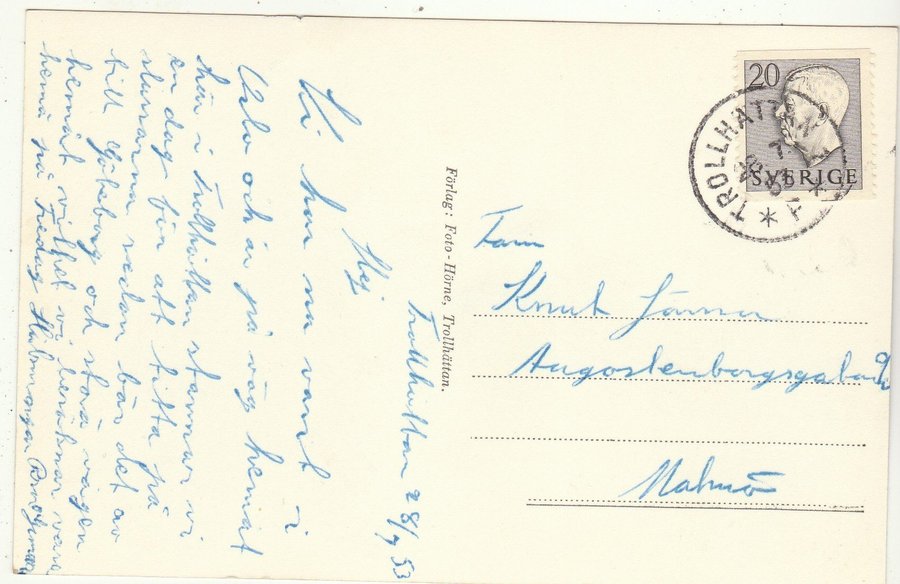 Trollhättan 28/7 53
Hej
Vi har nu varit i
Oslo och är på väg hemåt
här i Trollhättan stannar vi
en dag för att titta på
slussarna sedan bär det av
till Göteborg och stora vägen
hemåt vilket vi beräknar vara
hemma på Fredag
Förlag: Foto-Hörne, Trollhättan.
20
SVERIGE
TROLLHÄTTAN
Fam
Knut
Augostenborgsgatan
Malmö